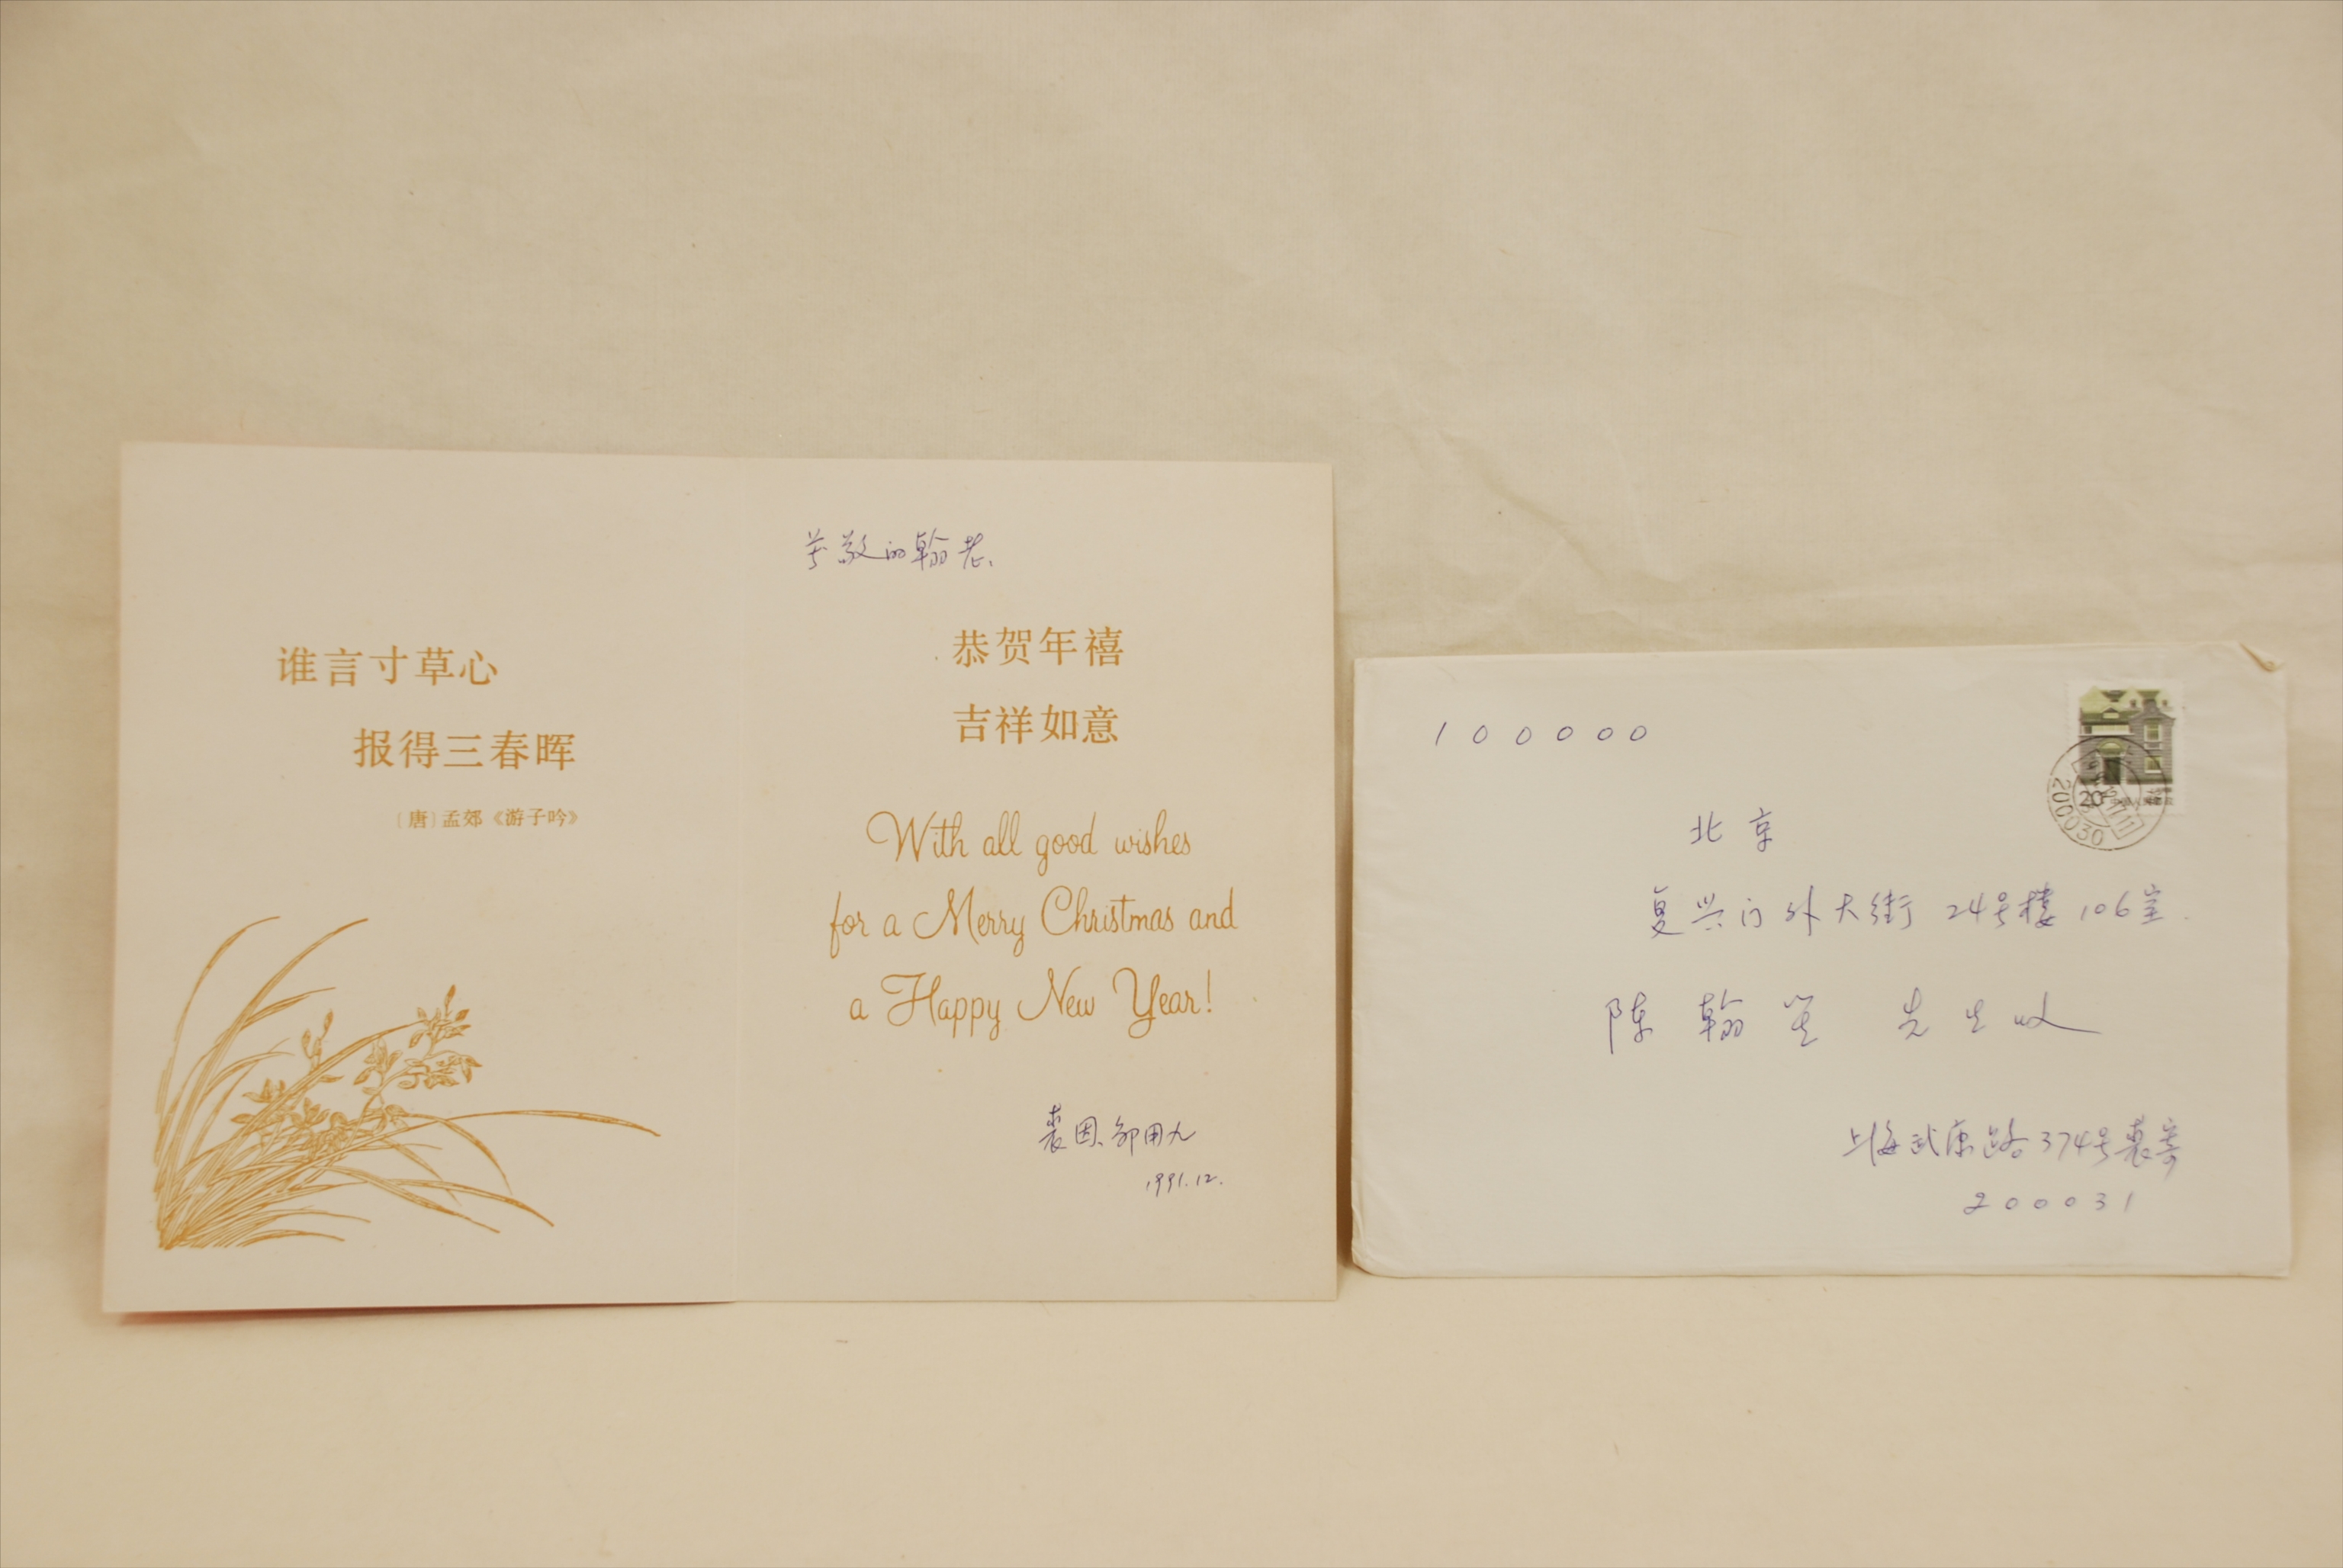 谁言寸草心
报得三春晖
〔唐〕孟郊《游子吟》
尊敬的翰老、
恭贺年禧
吉祥如意
With all good wishes
for a Merry Christmas and
a Happy New Year!
裘因、邹用九
1991.12.
100000
20
200030
北京
复兴门外大街 24号楼 106室
陈翰笙 先生收
上海武康路374号裘寄
200031